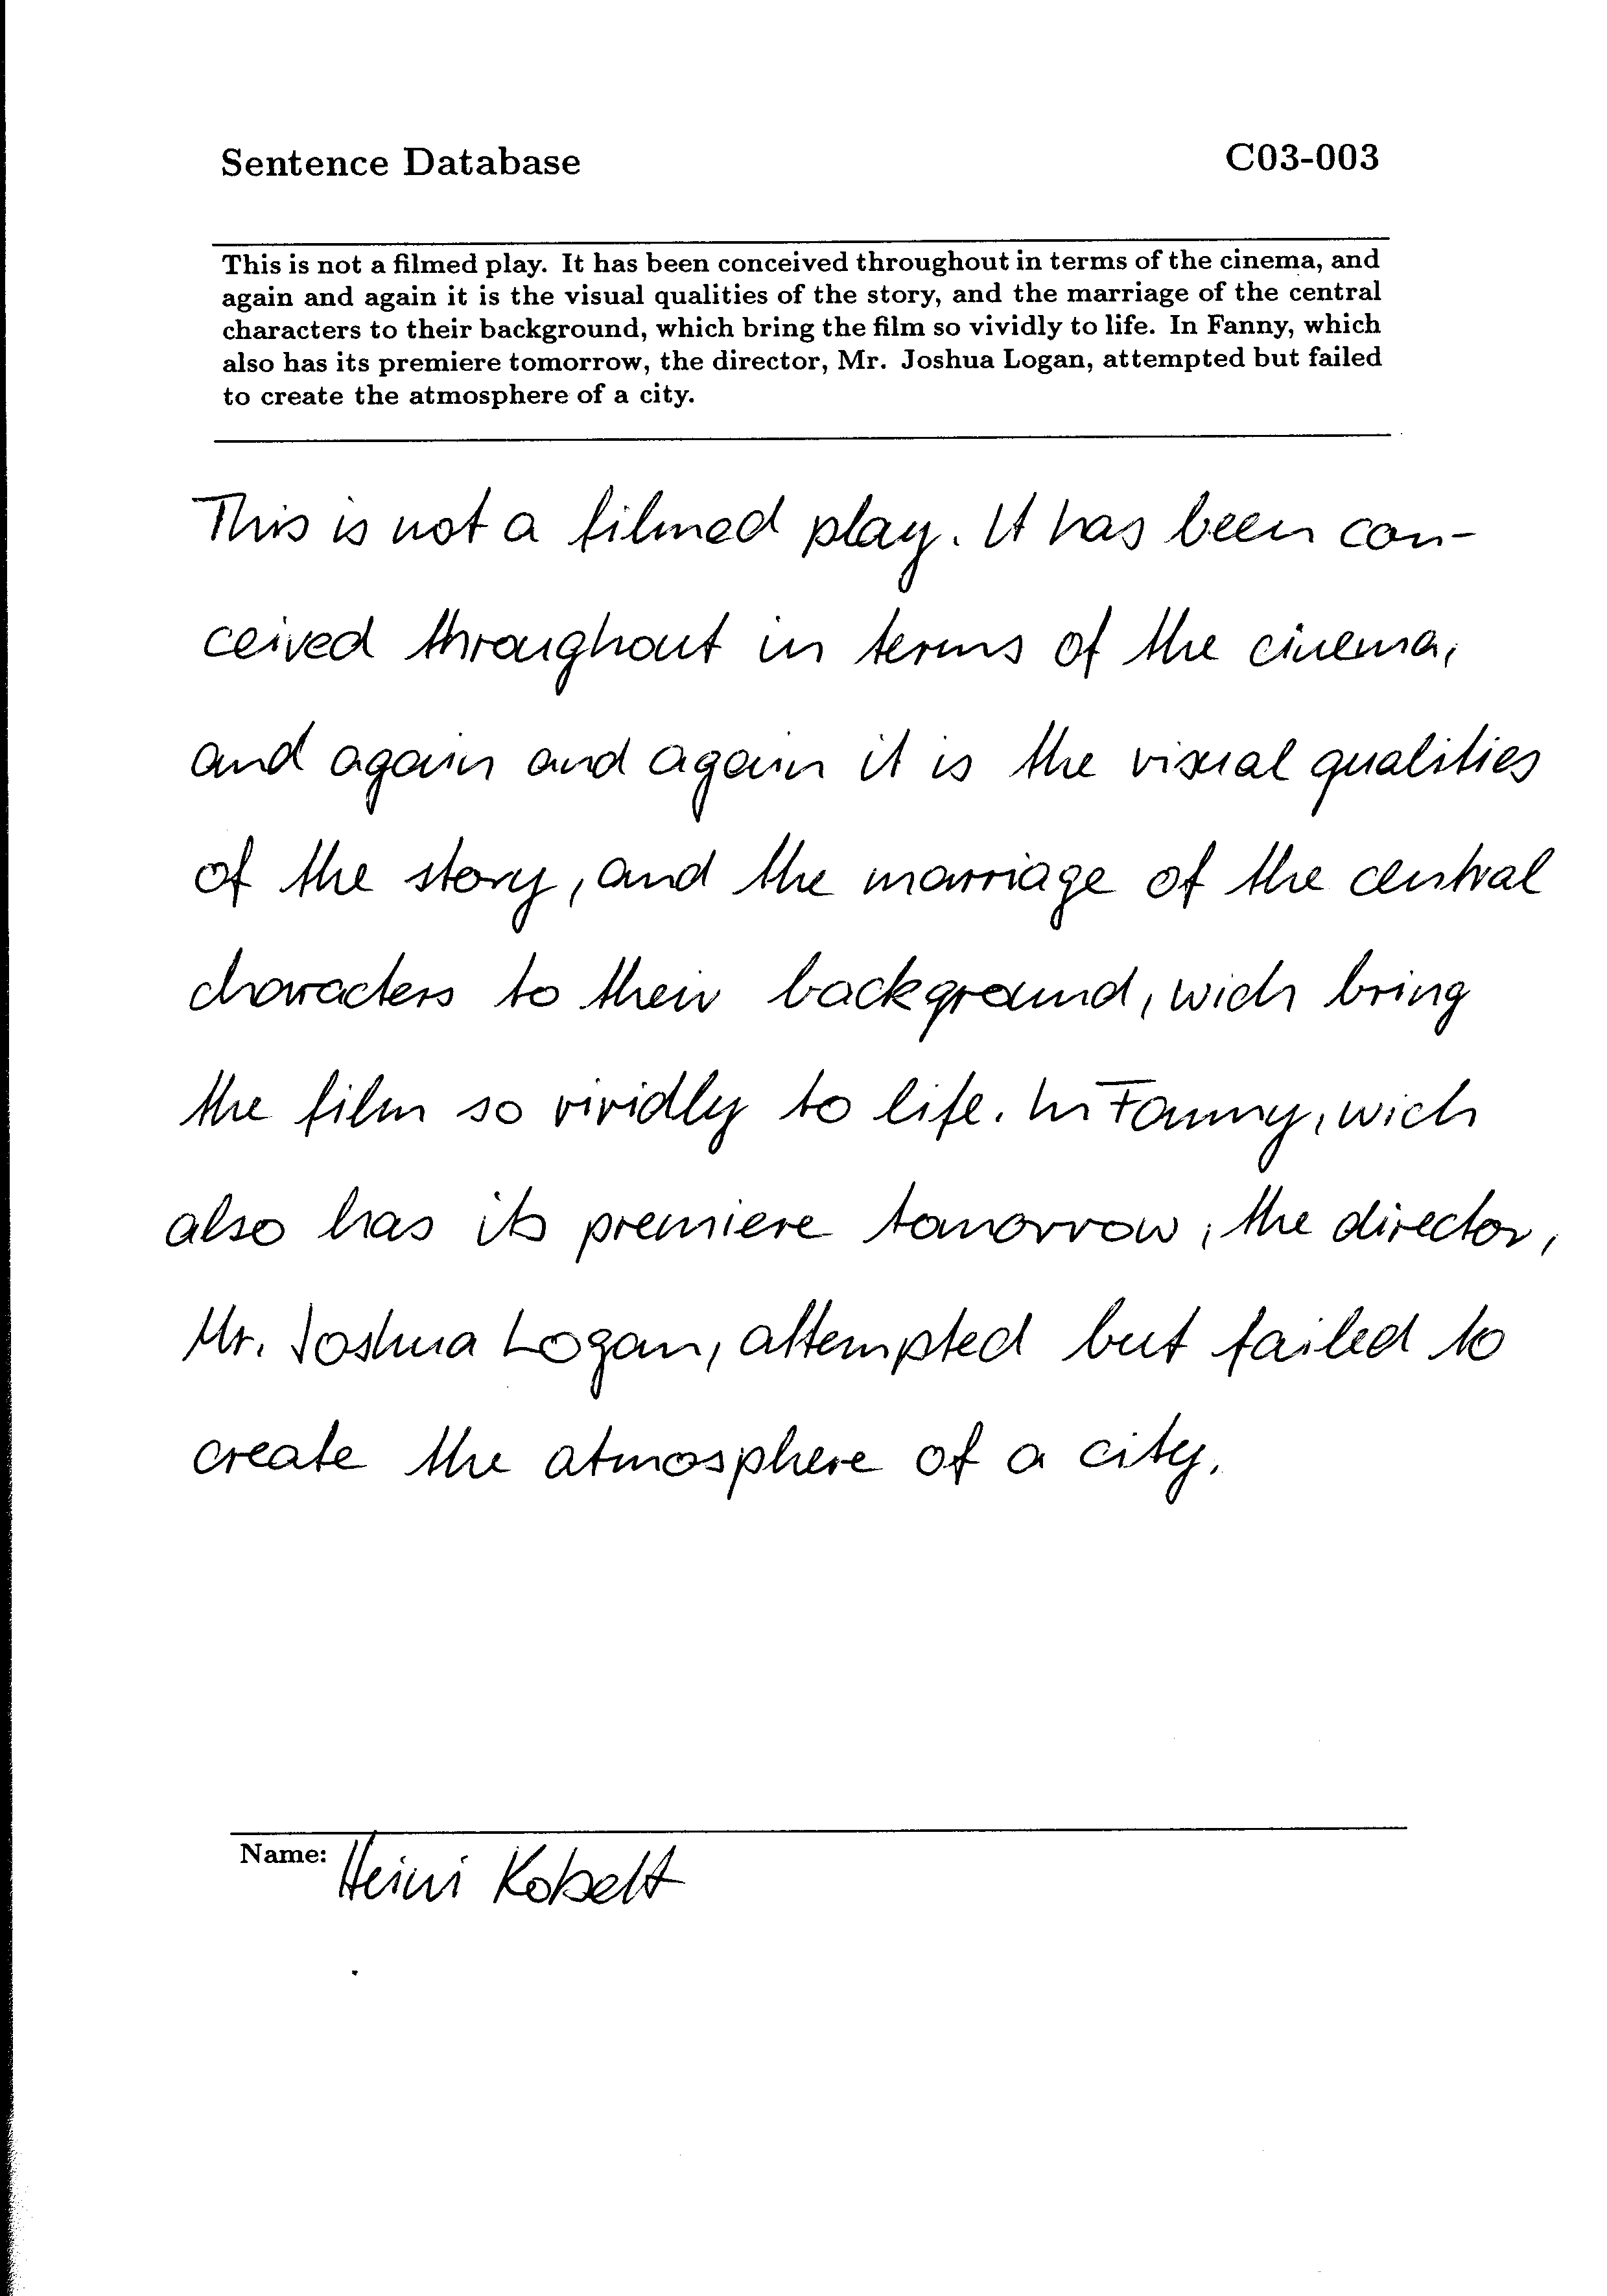 Sentence Database
C03-003
This is not a filmed play. It has been conceived throughout in terms of the cinema, and
again and again it is the visual qualities of the story, and the marriage of the central
characters to their background, which bring the film so vividly to life. In Fanny, which
also has its premiere tomorrow, the director, Mr. Joshua Logan, attempted but failed
to create the atmosphere of a city.
This is not a filmed play. It has been con-
ceived throughout in terms of the cinema,
and again and again it is the visual qualities
of the story, and the marriage of the central
characters to their background, wich bring
the film so vividly to life. In Fanny, wich
also has its premiere tomorrow, the director,
Mr. Joshua Logan, attempted but failed to
create the atmosphere of a city.
Name: Heini Kobelt